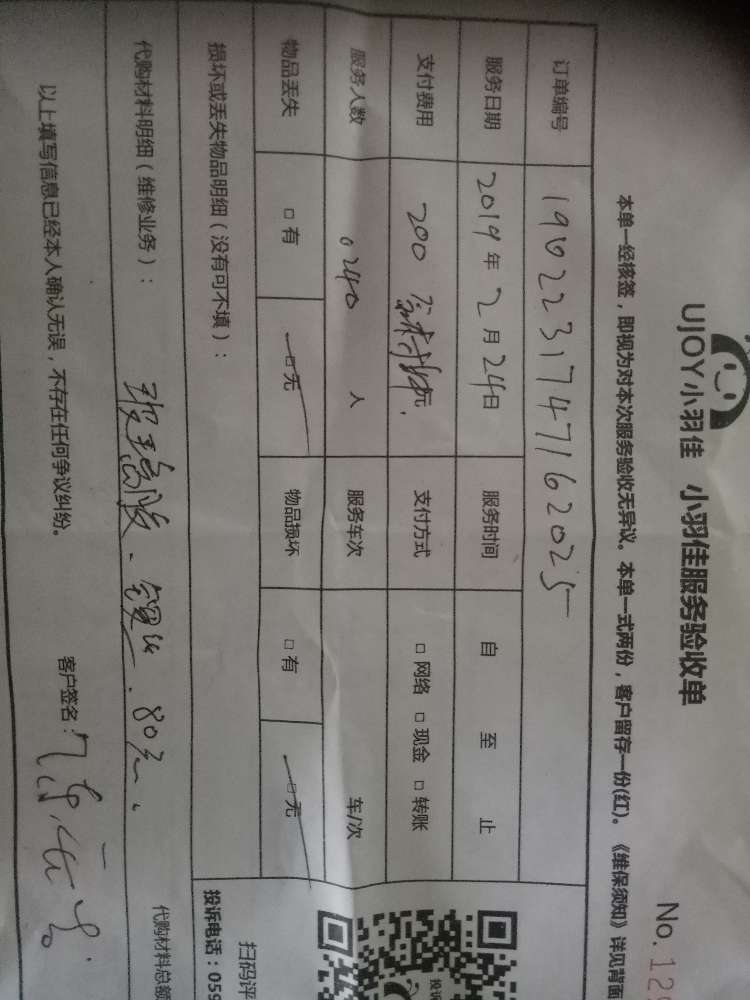 UJOY小羽佳 小羽佳服务验收单
No. 12
本单一经核签，即视为对本次服务验收无异议。本单一式两份，客户留存一份(红)。《维保须知》详见背面
订单编号 1902231747162025
服务日期 2019年2月24日 服务时间 自 至 止
支付费用 200 元 支付方式 □ 网络 □ 现金 □ 转账
服务人数 0240 人 服务车次 车/次
物品丢失 □ 有 □ 无 物品损坏 □ 有 □ 无
损坏或丢失物品明细（没有可不填）：
代购材料明细（维修业务）： 玻璃胶、 80元、
代购材料总额
以上填写信息已经本人确认无误，不存在任何争议纠纷。 客户签名：
扫码评
投诉电话：059
投诉